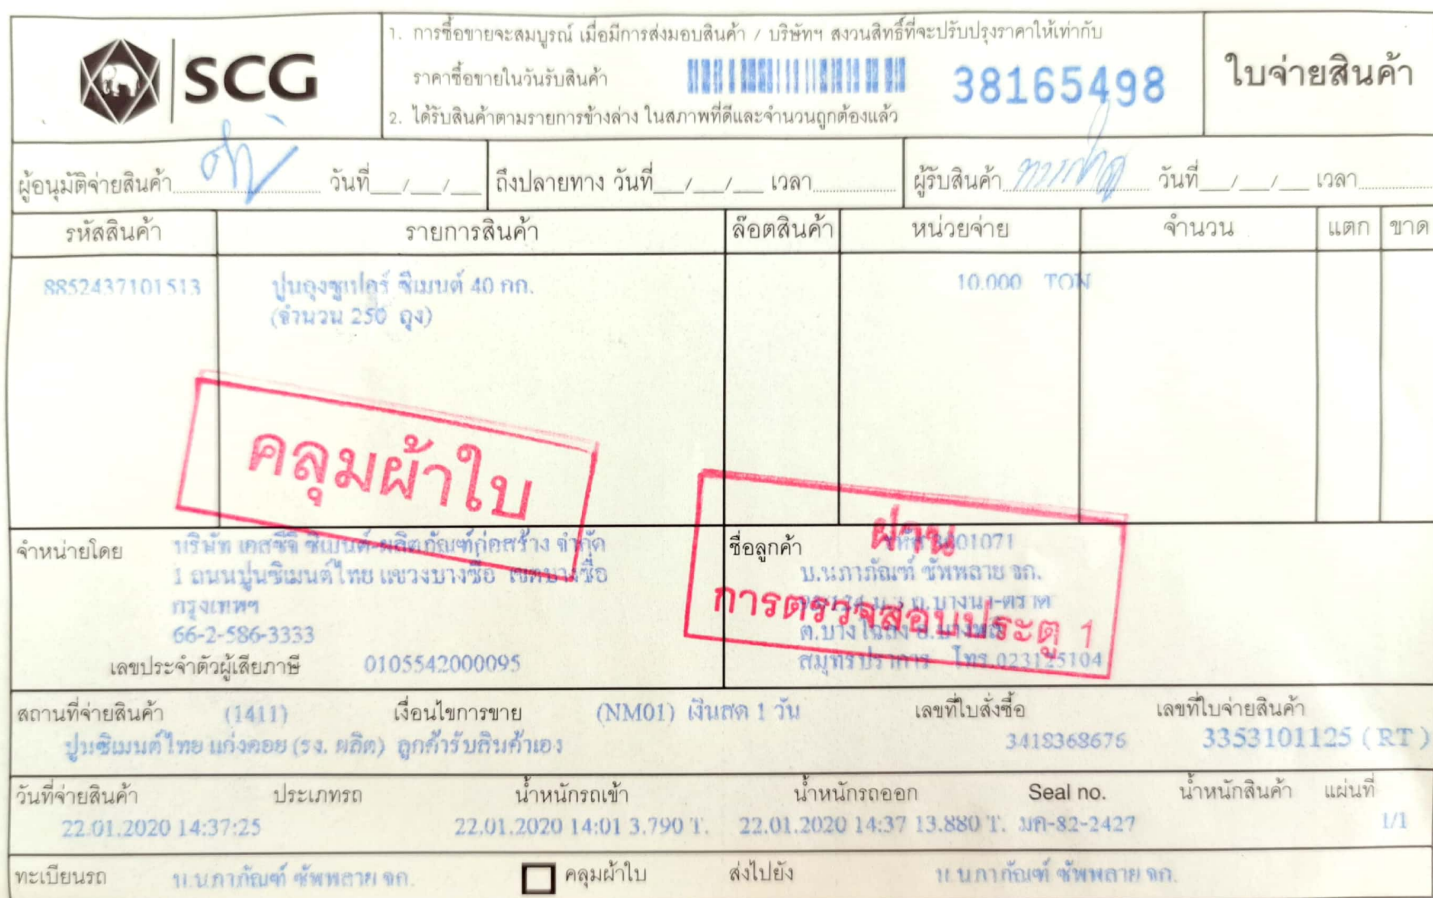 SCG
1. การซื้อขายจะสมบูรณ์ เมื่อมีการส่งมอบสินค้า / บริษัทฯ สงวนสิทธิ์ที่จะปรับปรุงราคาให้เท่ากับ
ราคาซื้อขายในวันรับสินค้า
38165498
ใบจ่ายสินค้า
2. ได้รับสินค้าตามรายการข้างล่าง ในสภาพที่ดีและจำนวนถูกต้องแล้ว
ผู้อนุมัติจ่ายสินค้า วันที่__/__/__ ถึงปลายทาง วันที่__/__/__ เวลา ผู้รับสินค้า วันที่__/__/__ เวลา
รหัสสินค้า รายการสินค้า ล๊อตสินค้า หน่วยจ่าย จำนวน แตก ขาด
8852437101513 ปูนถุงซูเปอร์ ซีเมนต์ 40 กก. 10.000 TON
(จำนวน 250 ถุง)
คลุมผ้าใบ
ผ่าน
การตรวจสอบประตู 1
จำหน่ายโดย บริษัท เอสซีจี ซีเมนต์-ผลิตภัณฑ์ก่อสร้าง จำกัด
1 ถนนปูนซิเมนต์ไทย แขวงบางซื่อ เขตบางซื่อ
กรุงเทพฯ
66-2-586-3333
เลขประจำตัวผู้เสียภาษี 0105542000095
ชื่อลูกค้า
บ.นภาภัณฑ์ ซัพพลาย จก.
ถ.บางนา-ตราด
ต.บางโฉลง อ.บางพลี
สมุทรปราการ โทร.023125104
สถานที่จ่ายสินค้า (1411) เงื่อนไขการขาย (NM01) เงินสด 1 วัน เลขที่ใบสั่งซื้อ เลขที่ใบจ่ายสินค้า
ปูนซิเมนต์ไทย แก่งคอย (รง. ผลิต) ลูกค้ารับสินค้าเอง 3418368676 3353101125 ( RT )
วันที่จ่ายสินค้า ประเภทรถ น้ำหนักรถเข้า น้ำหนักรถออก Seal no. น้ำหนักสินค้า แผ่นที่
22.01.2020 14:37:25 22.01.2020 14:01 3.790 T. 22.01.2020 14:37 13.880 T. มค-82-2427 1/1
ทะเบียนรถ บ.นภาภัณฑ์ ซัพพลาย จก. คลุมผ้าใบ ส่งไปยัง บ.นภาภัณฑ์ ซัพพลาย จก.